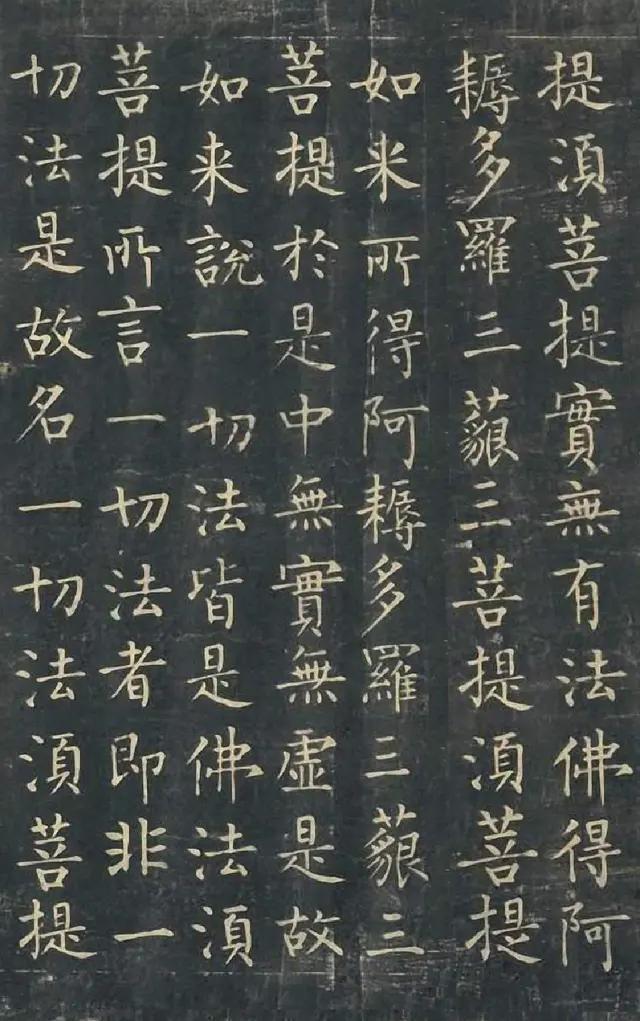 提湏菩提實無有法佛得阿
耨多羅三藐三菩提湏菩提
如来所得阿耨多羅三藐三
菩提於是中無實無虛是故
如来說一切法皆是佛法湏
菩提所言一切法者即非一
切法是故名一切法湏菩提